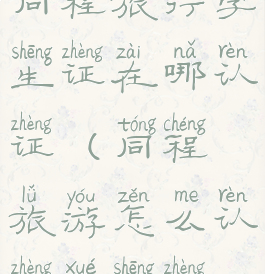 同程旅行学
shēng zhèng zài nǎ rèn
生证在哪认
zhèng tóng chéng
证（同程
lǚ yóu zěn me rèn
旅游怎么认
zhèng xué shēng zhèng